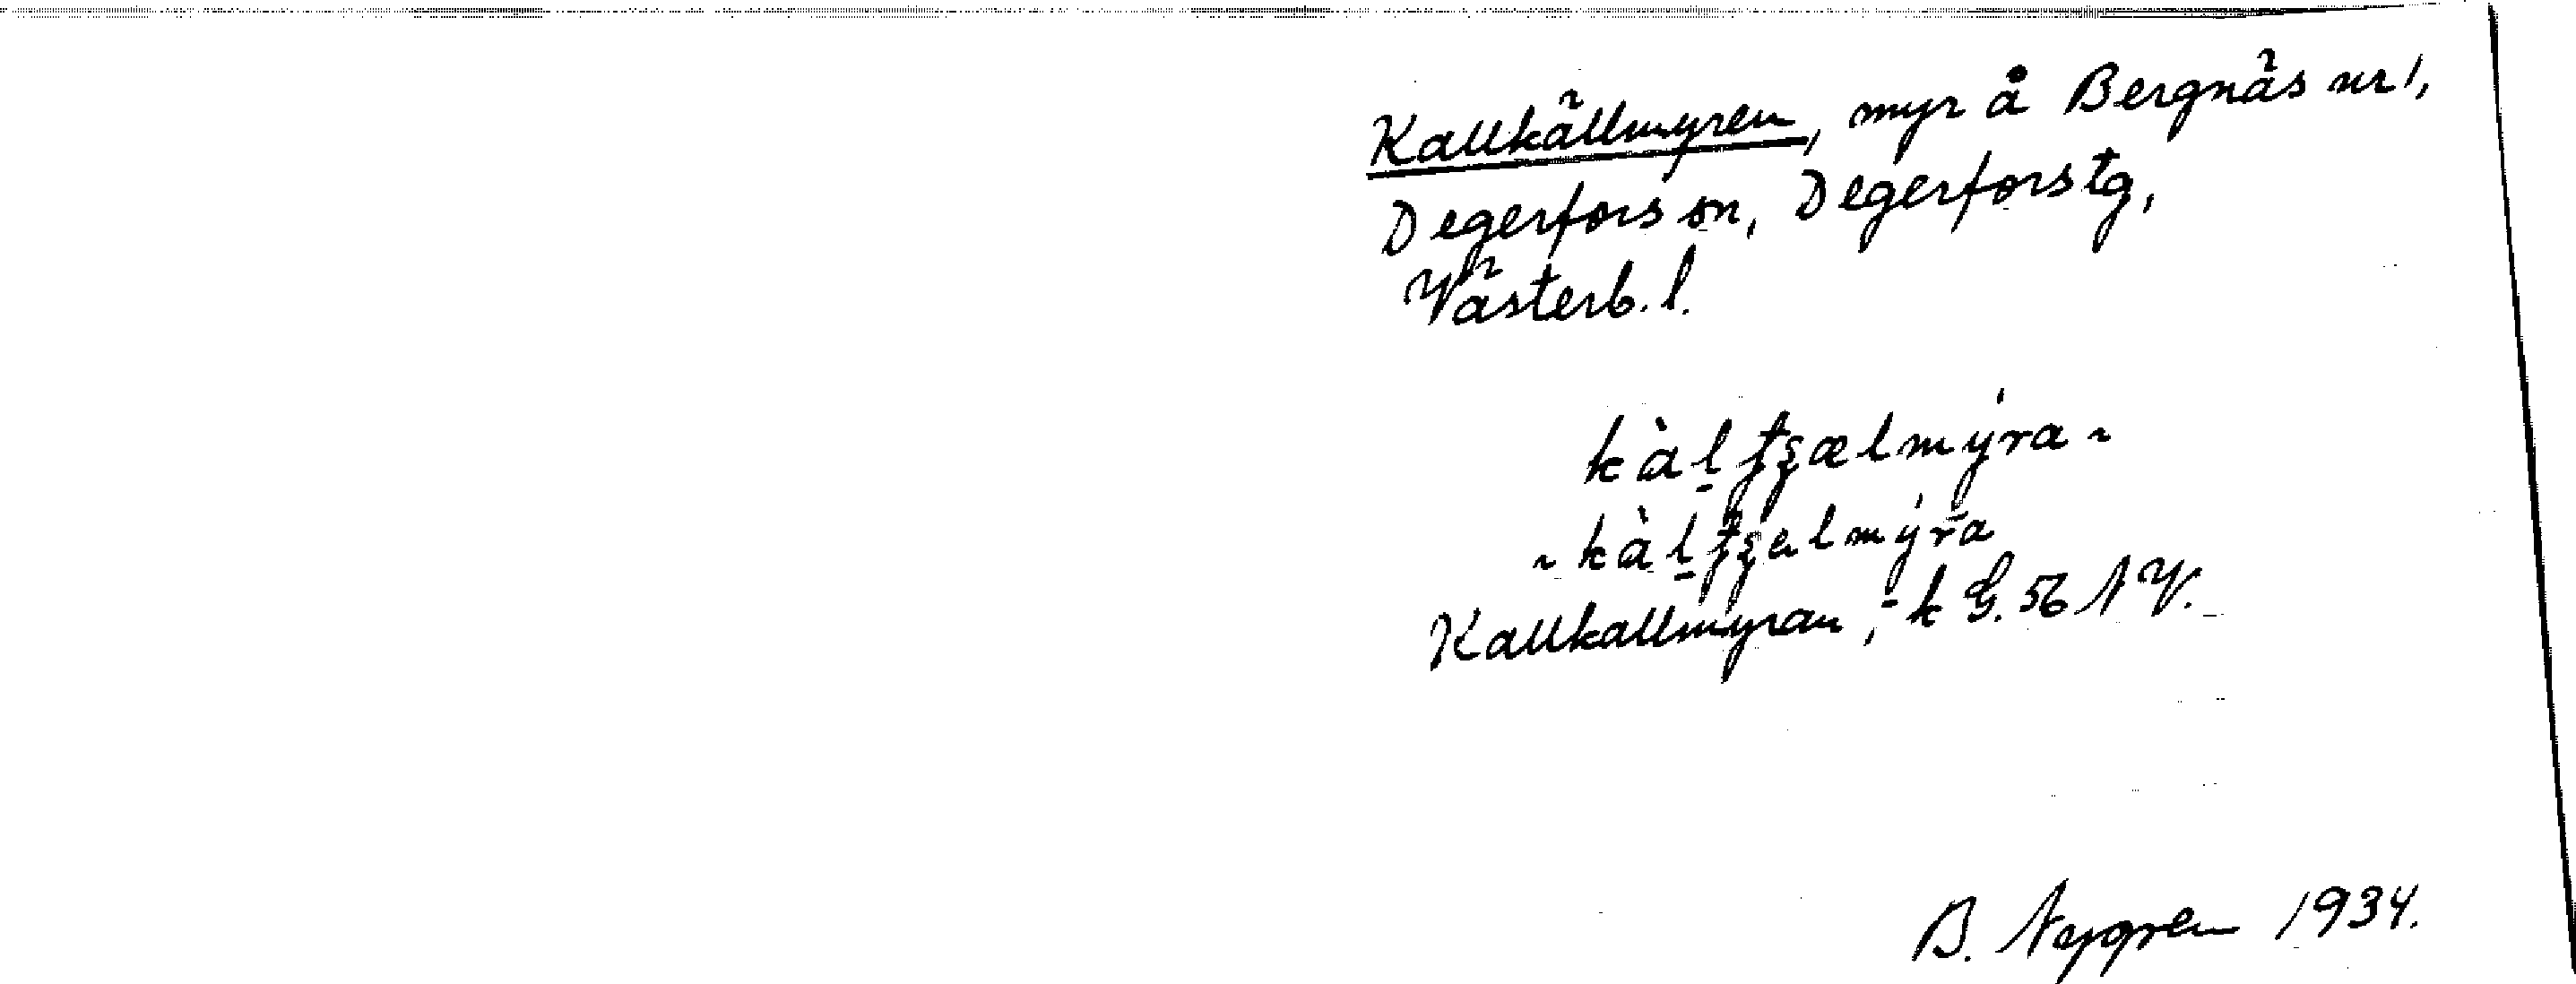 Kallkällmyren, myr å Bergnäs nr 1,
Degerfors sn, Degerfors tg,
Västerb. l.
kàl̠tʂælmýra ~
~ kàl̠tʂelmýra
Kallkallmyran, -k G. 56 NV.
B. Nygren 1934.